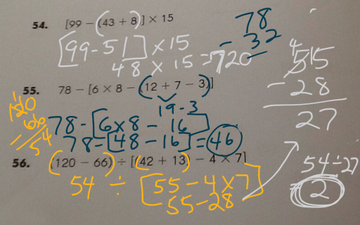 54. [99 – (43 + 8)] × 15
[99-51] × 15
48 × 15 = 720
78
- 32
55. 78 – [6 × 8 – (12 + 7 – 3)]
19-3
78 - [6×8 - 16]
78 - [48 - 16] = 46
56. (120 – 66) ÷ [(42 + 13) – 4 × 7]
54 ÷ [55-4×7]
55-28
120
66
54
4
515
- 28
27
54÷27
2